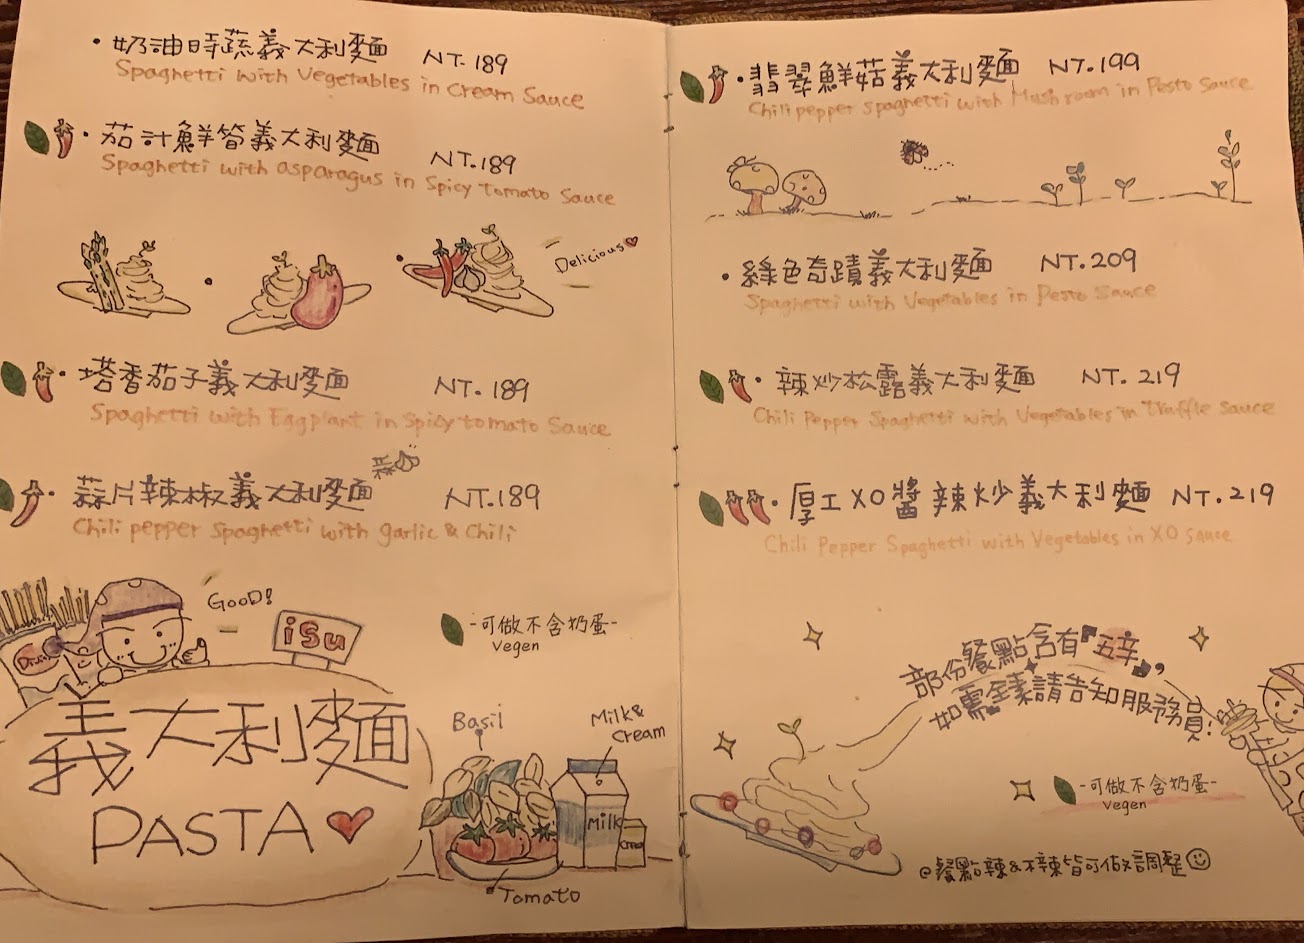 ・奶油時蔬義大利麵 NT.189
Spaghetti with Vegetables in Cream Sauce
・茄汁鮮筍義大利麵 NT.189
Spaghetti with asparagus in Spicy Tomato Sauce
Delicious
・塔香茄子義大利麵 NT.189
Spaghetti with Eggplant in Spicy tomato Sauce
蒜
・蒜片辣椒義大利麵 NT.189
Chili pepper Spaghetti with garlic & Chili
GOOD!
isu
-可做不含奶蛋-
Vegen
義大利麵
PASTA
Basil
Milk&
Cream
Milk
Tomato
・翡翠鮮菇義大利麵 NT.199
Chili pepper spaghetti with Mushroom in Pesto Sauce
・綠色奇蹟義大利麵 NT.209
Spaghetti with Vegetables in Pesto Sauce
・辣炒松露義大利麵 NT.219
Chili Pepper Spaghetti with Vegetables in Truffle Sauce
・厚工XO醬辣炒義大利麵 NT.219
Chili Pepper Spaghetti with Vegetables in XO sauce
部份餐點含有『五辛』,
如需全素請告知服務員!
-可做不含奶蛋-
Vegen
@餐點辣&不辣皆可做調整